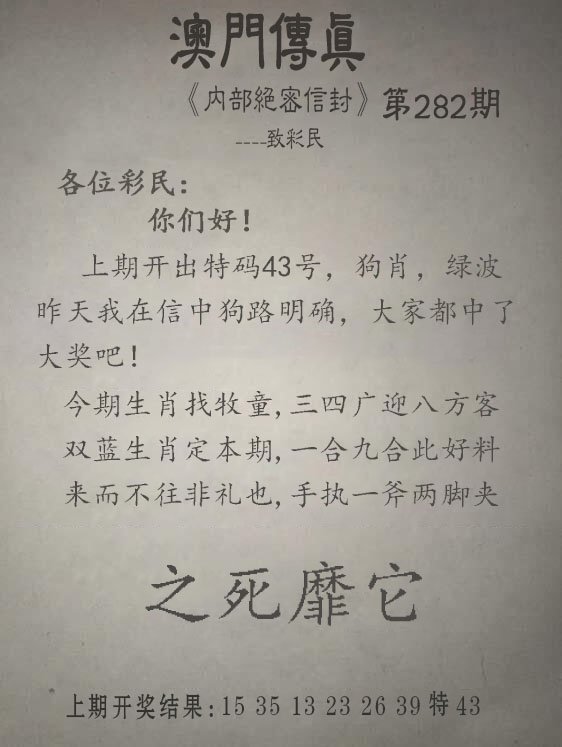 澳門傳眞
《内部絕密信封》第282期
----致彩民
各位彩民：
你们好！
上期开出特码43号，狗肖，绿波
昨天我在信中狗路明确，大家都中了
大奖吧！
今期生肖找牧童,三四广迎八方客
双蓝生肖定本期,一合九合此好料
来而不往非礼也,手执一斧两脚夹
之死靡它
上期开奖结果:15 35 13 23 26 39特43